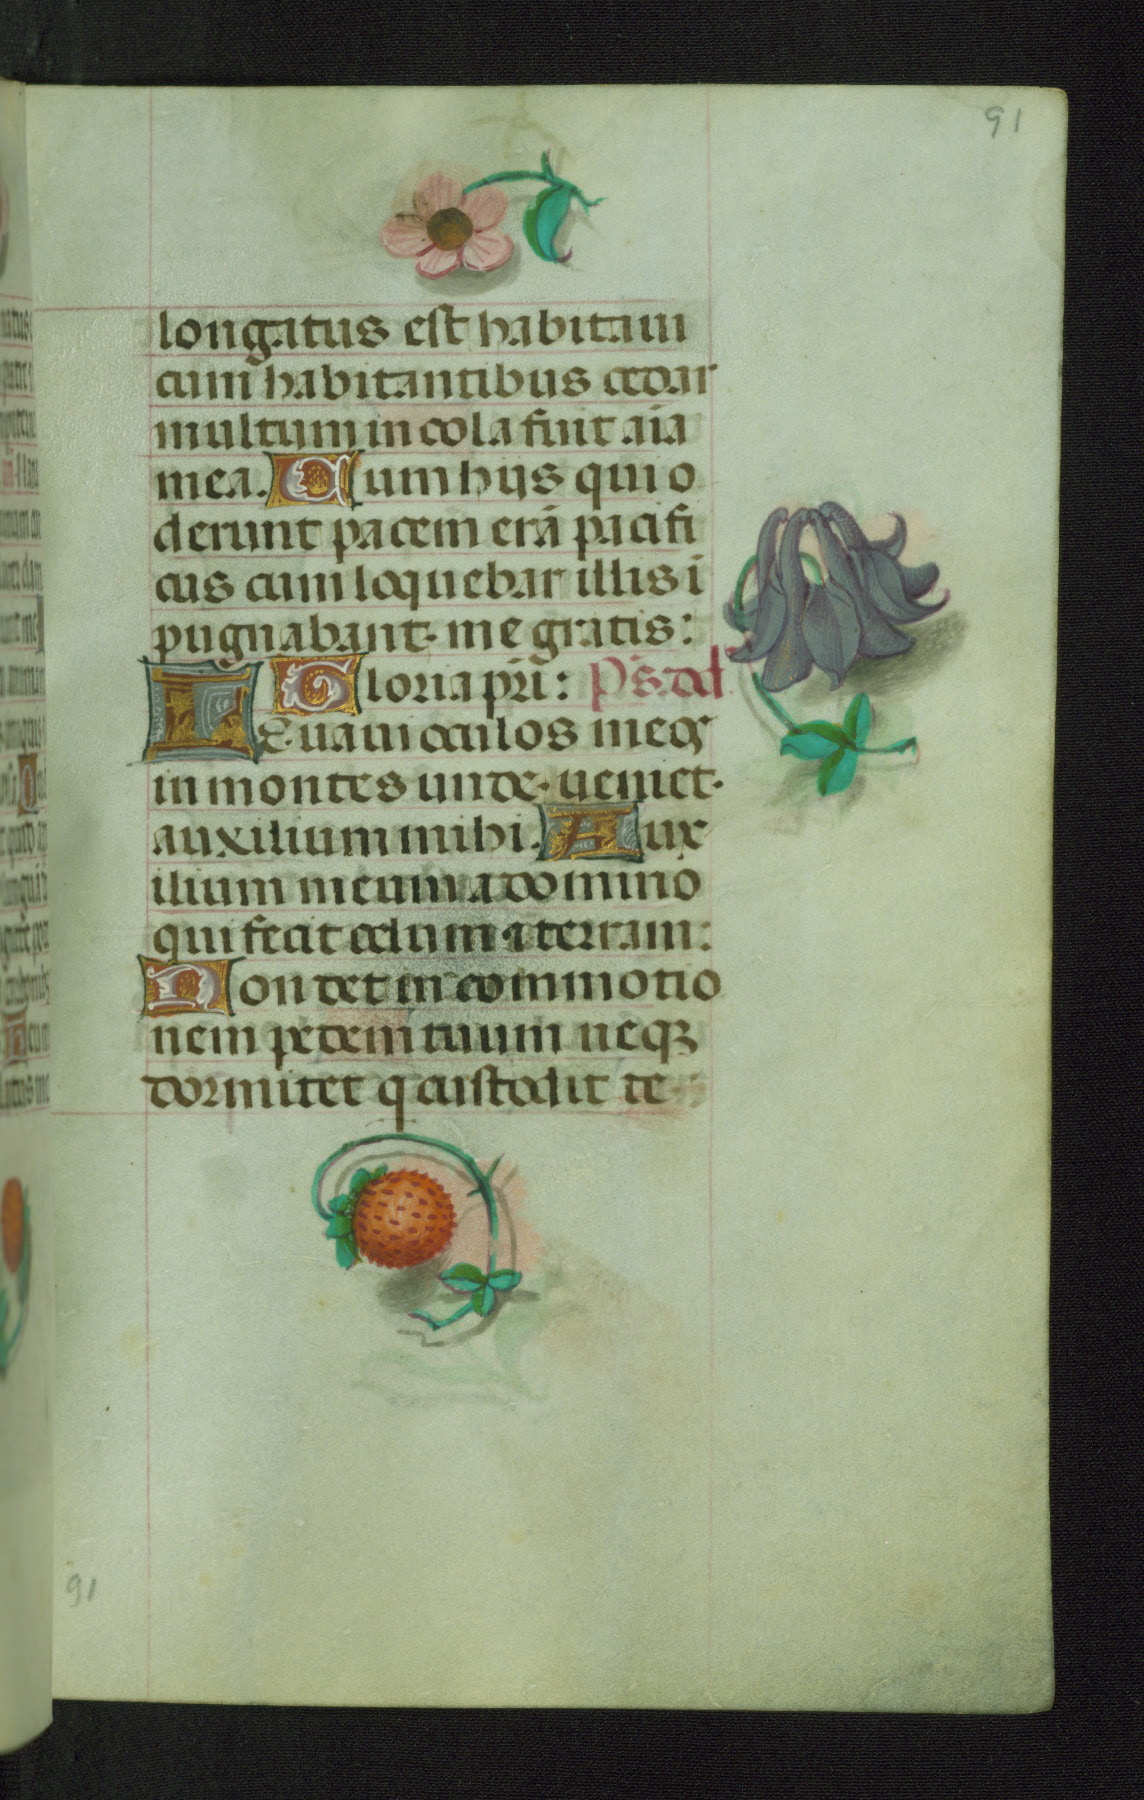 91
longatus est habitaui
cum habitantibus cedar
multum incola fuit aīa
mea. Cum hijs qui o
derunt pacem erā pacifi
cus cum loquebar illis ī
pugnabant me gratis:
Gloria pr̄i: P̄s. dd̄.
Leuaui oculos meos
in montes unde ueniet
auxilium mihi. Aux
ilium meum a domino
qui fecit celum ⁊ terram:
Non det in commotio
nem pedem tuum neqꝫ
dormitet q custodit te
91